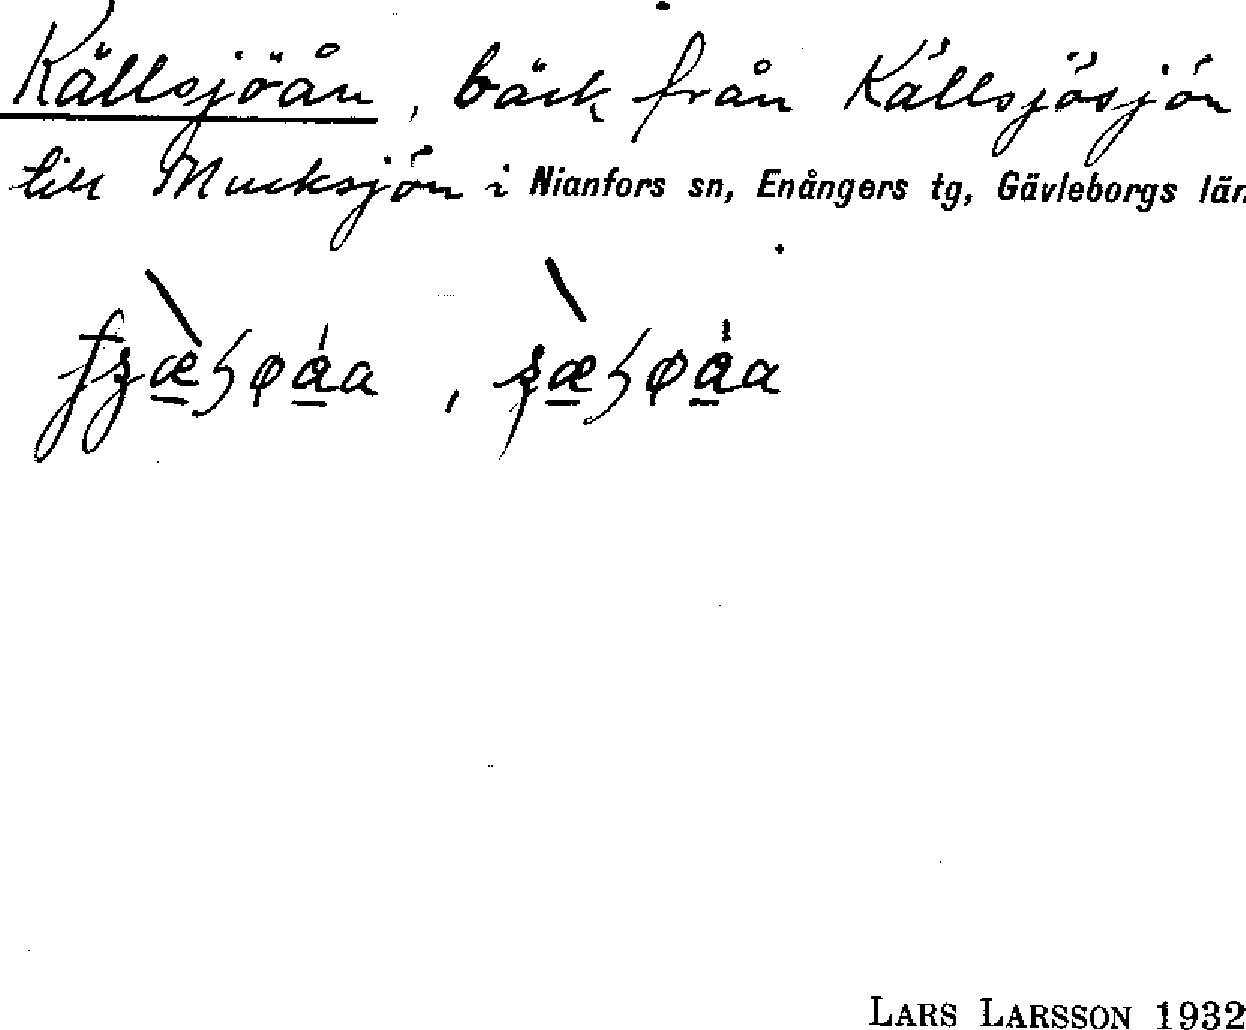 Källsjöån, bäck från Källsjösjön
till Mucksjön i Nianfors sn, Enångers tg, Gävleborgs län
LARS LARSSON 1932